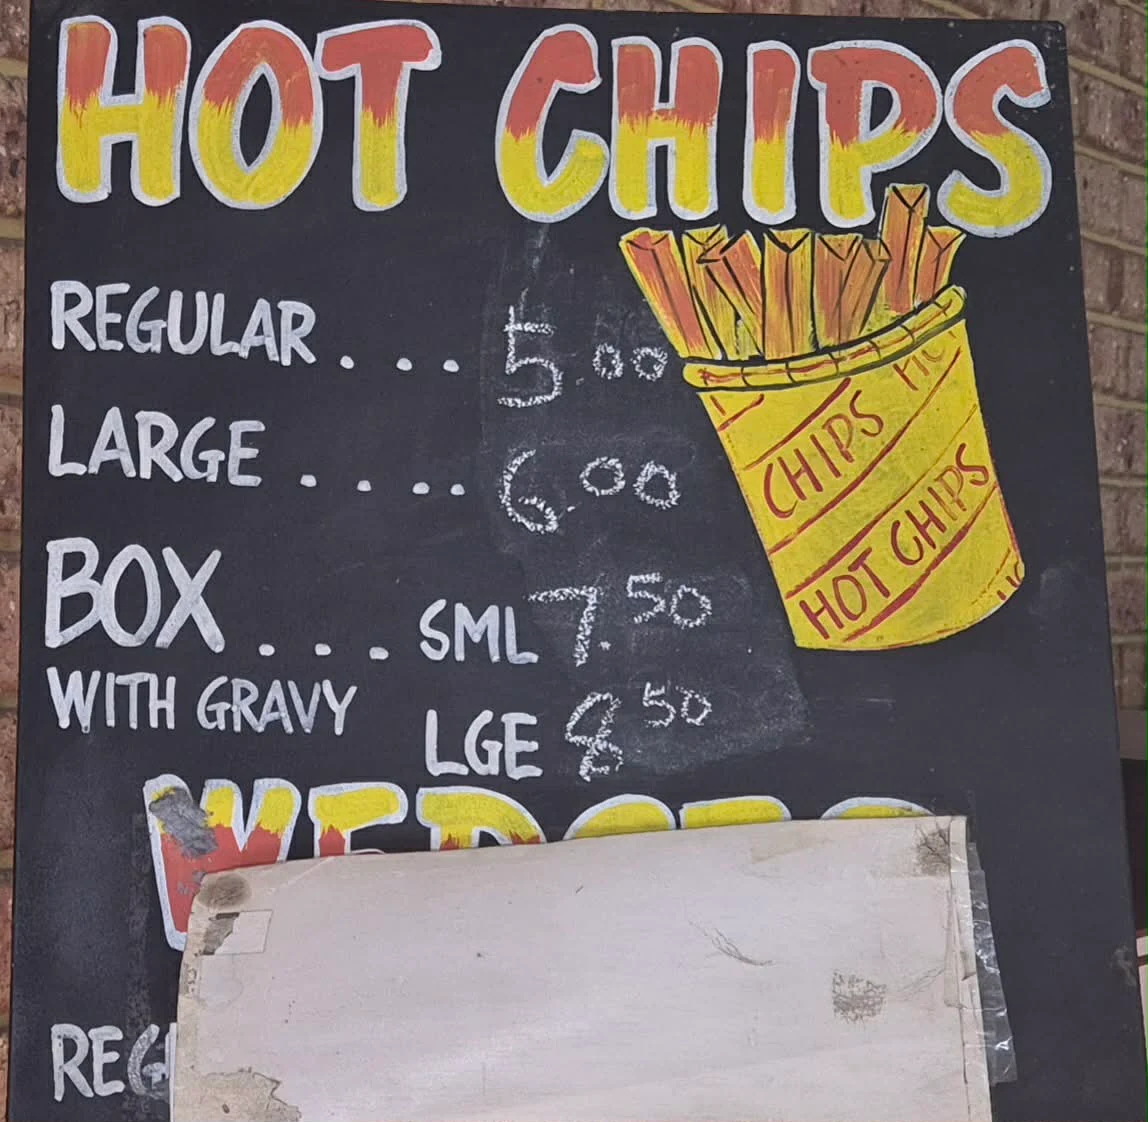 HOT CHIPS
REGULAR . . . 5.00
LARGE . . . . 6.00
BOX . . . SML 7.50
WITH GRAVY
LGE 8 50
CHIPS
HOT CHIPS